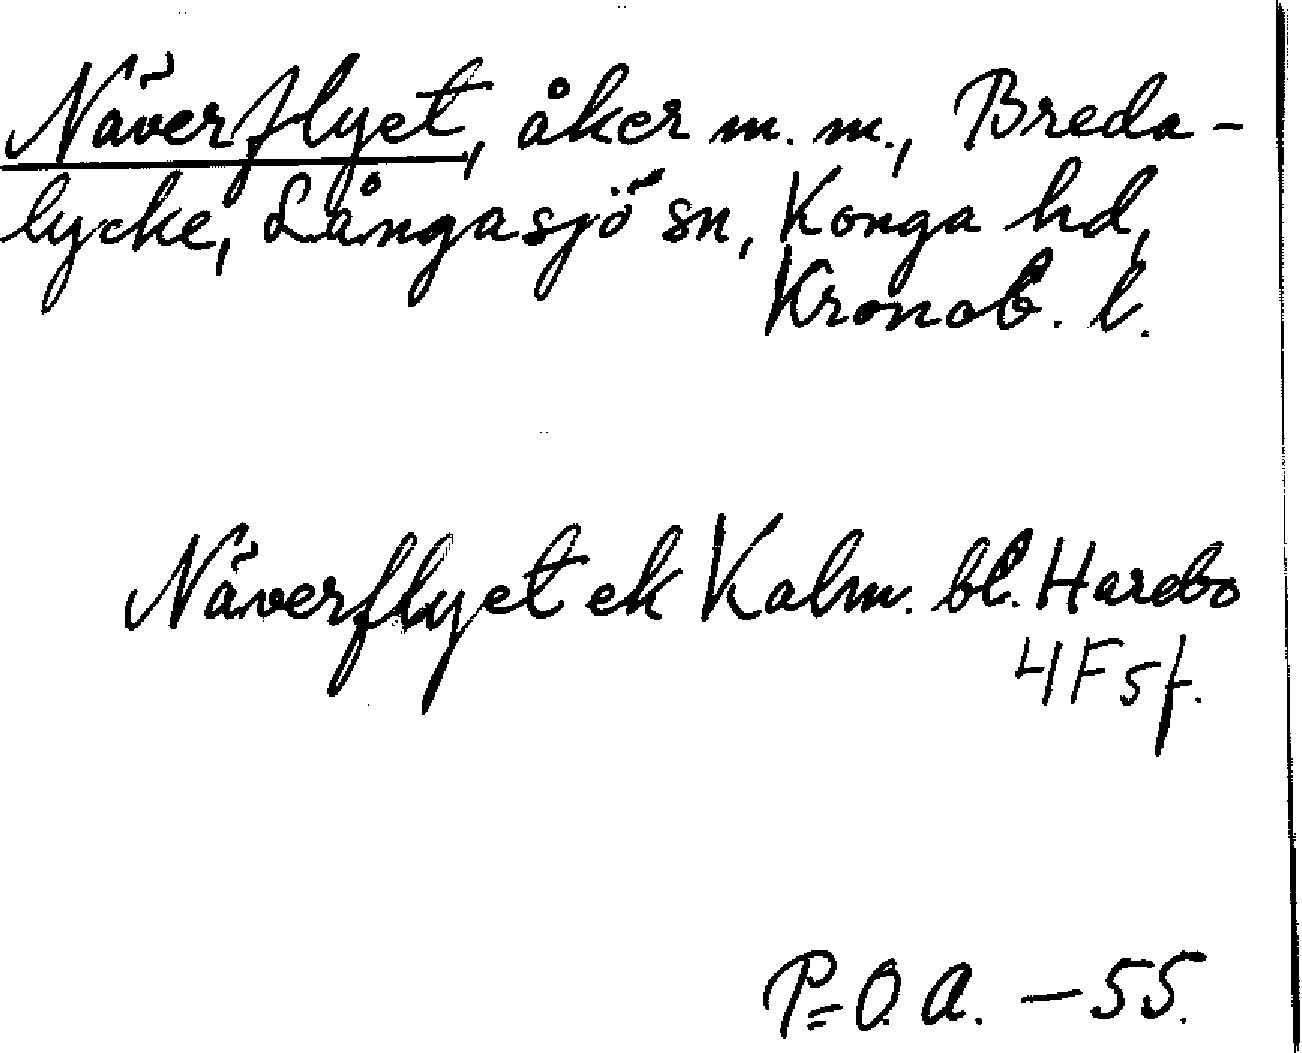 Näverflyet, åker m. m., Breda-
lycke, Långasjö sn, Konga hd,
Kronob. l.
Näverflyet ek Kalm. bl. Harebo
4F5f.
P=O. A. – 55.